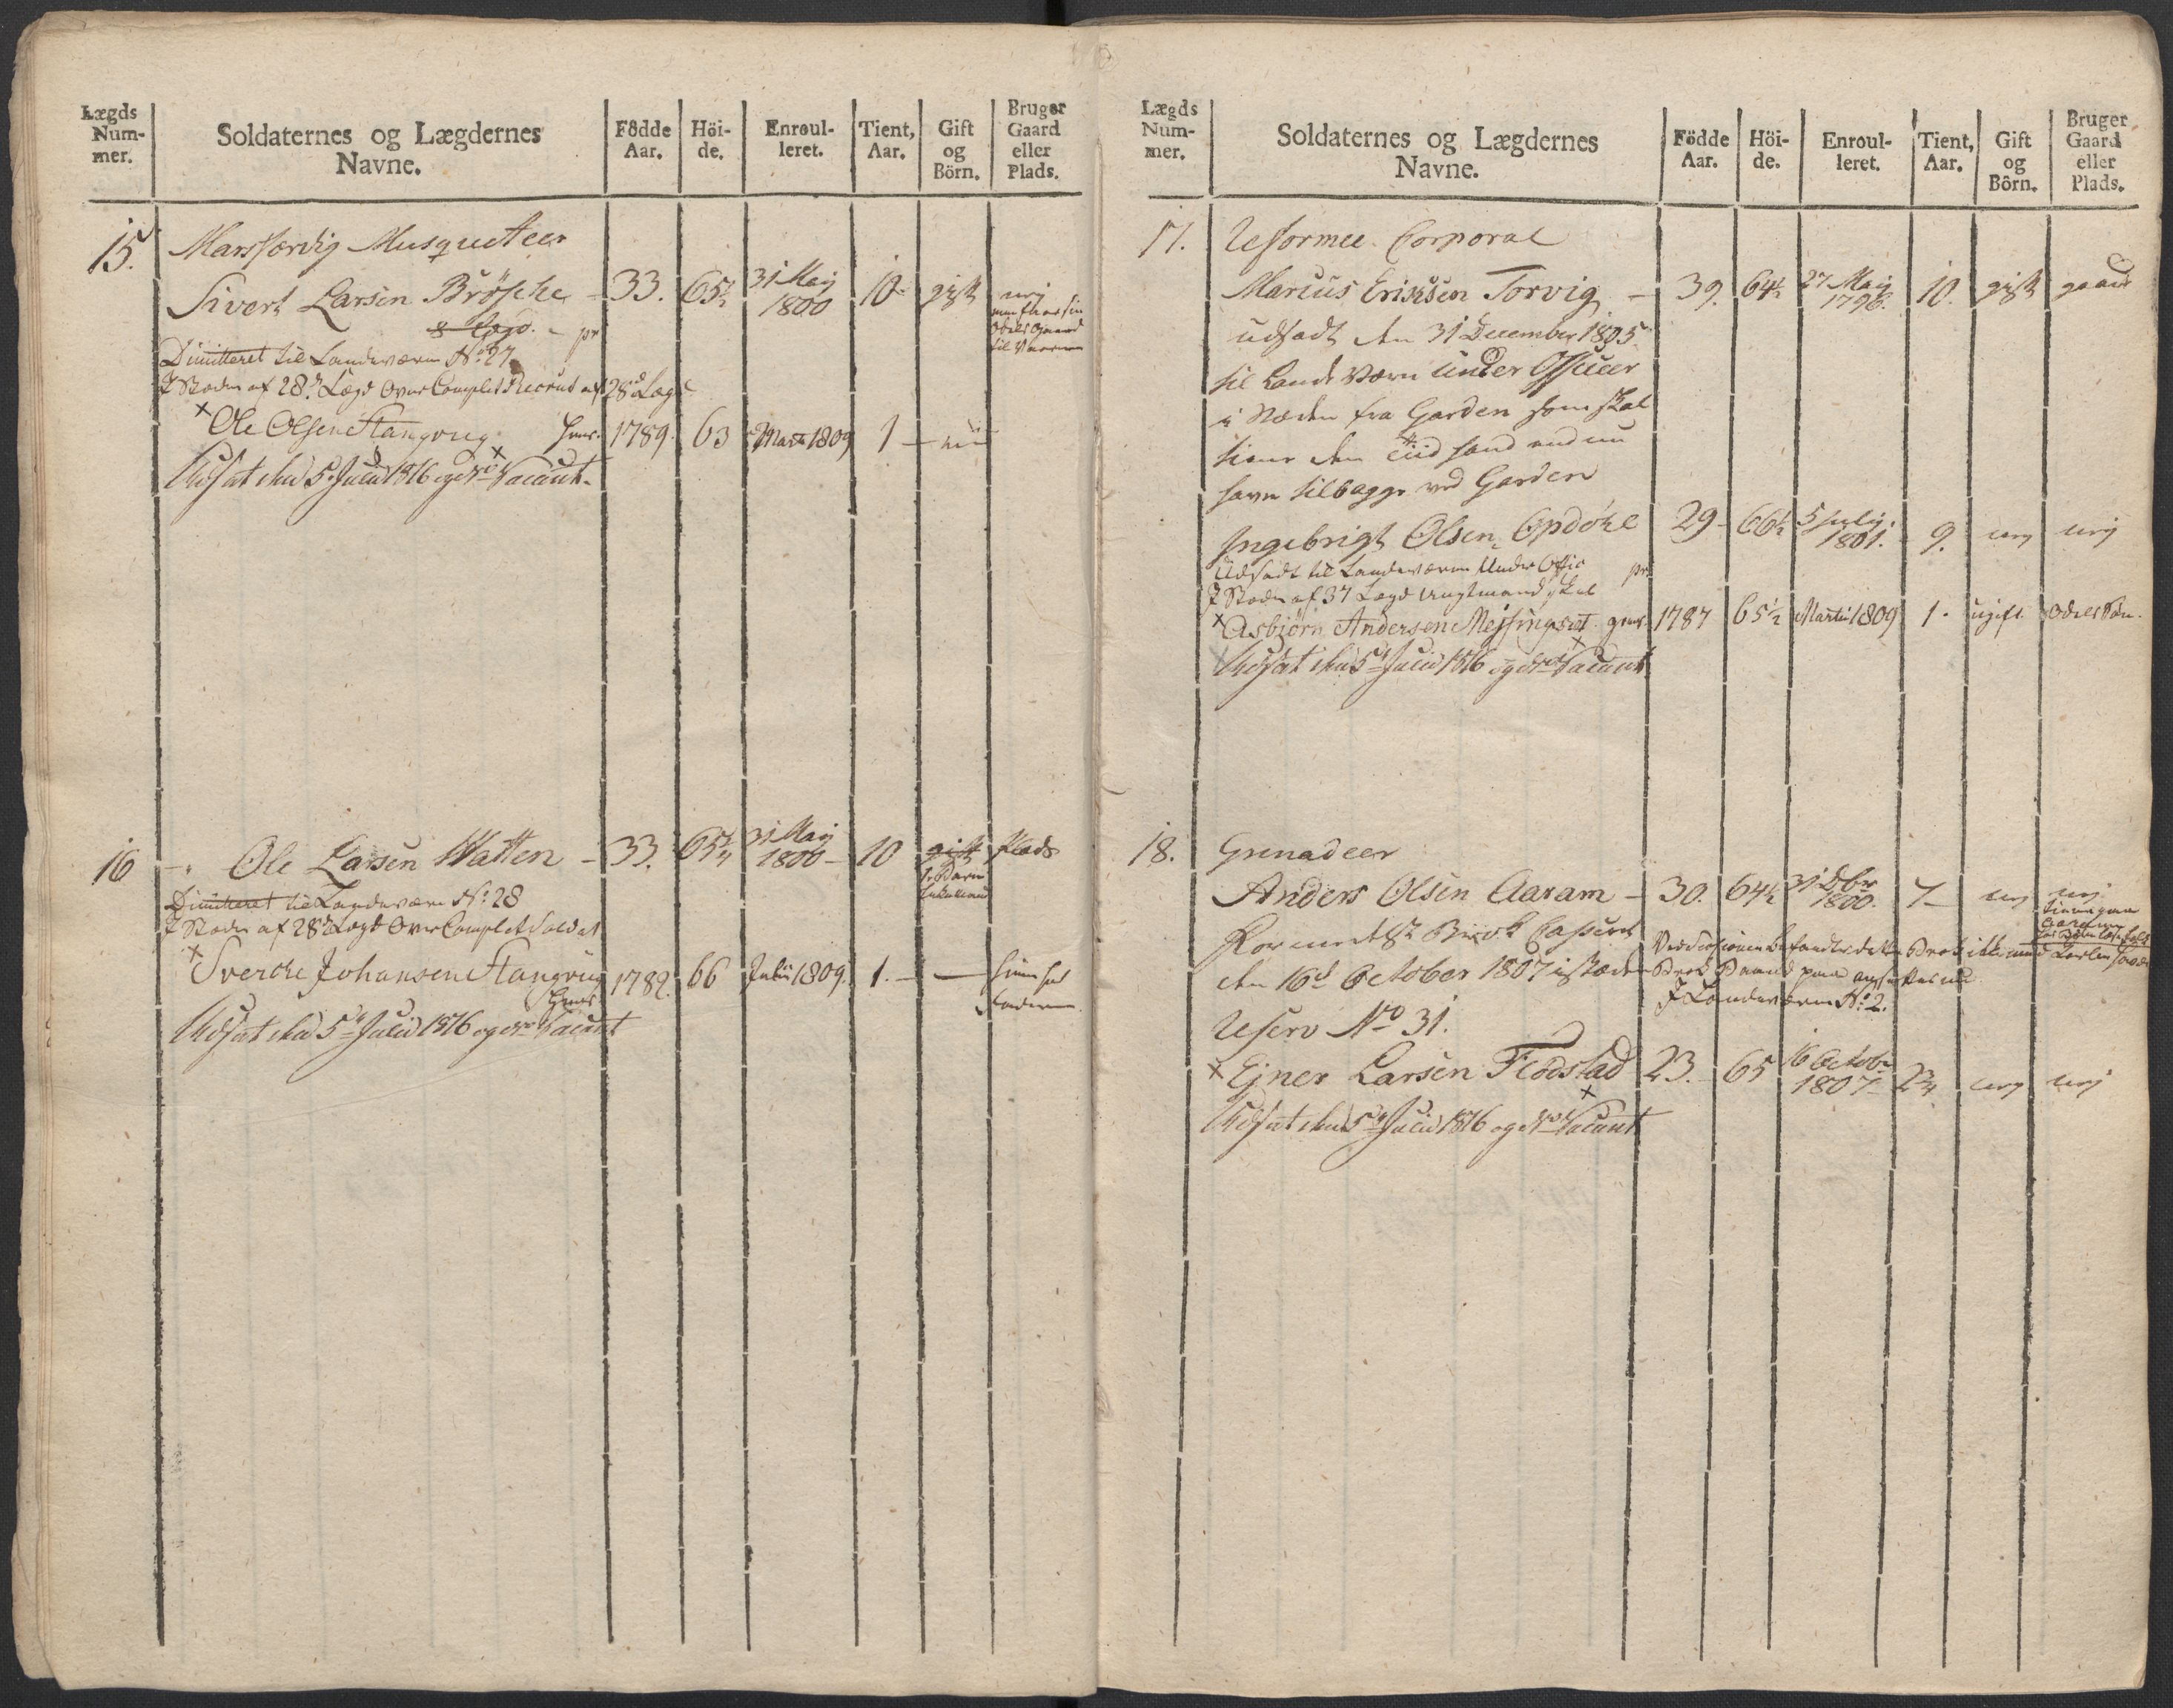 Lægds Num- mer. | Soldaternes og Lægdernes Navne. | Födde Aar. | Höi- de. | Enroul- leret. | Tient, Aar. | Gift og Börn. | Bruger Gaard eller Plads.
15. Marsfærdig Musqueteer
Sivert Larsen Bröske - 33. 65½ 31 Maij 1800 10 gift nej
Odels Gaard
Dimitteret til Landeværn No 27
I Steden af 28d Lægd Over Complet Recrut af 28d Lægd
× Ole Olsen Stangvig Gevr. 1789. 63 Marti 1809 1 -
Udsat den 5 Julii 1816 og No Vacant.
16 -" Ole Larsen Watten - 33. 65¼ 31 Maij 1800 - 10 gift Plads
1. Barn
Dimitteret til Landeværn No 28
I Steden af 28d Lægd Over Complet Soldat
× Sverche Johansen Stangvig 1782. 66 Julii 1809. 1. - -
Gevr
Udsat den 5 Julii 1816 og No Vacant
Lægds Num- mer. | Soldaternes og Lægdernes Navne. | Födde Aar. | Höi- de. | Enroul- leret. | Tient, Aar. | Gift og Börn. | Bruger Gaard eller Plads.
17. Reformee Corporal
Marius Eriksen Torvig - 39. 64½ 27 Maij 1796. 10. gift gaard
udsadt den 31 December 1805
til Lande Værn Under Officeer
i Stæden fra Garden som skal
tiene den Tiid hand endnu
have tilbagge ved Garden
Ingebrigt Olsen Opdöhl 29- 66½ 5 Julij 1801. 9. nej nej
Udsadt til Landeværn Under Offic
I Steden af 37 Lægd Ungtmandskab
× Asbiørn Andersen Mejsingset gevr. 1787 65½ Martii 1809 1. ugift Odels Søn.
Udsat den 5 Julii 1816 og No Vacant
18. Grenadeer
Anders Olsen Aaram - 30. 64½ 31 Dbr 1800. 7- nej nej
den 16d October 1807 i Stæden
I Landeværn No 2.
Reserv No 31.
× Ejner Larsen Flödstad 23. 65 16 Octobr 1807 2¾ nej nej
Udsat den 5 Julii 1816 og No Vacant